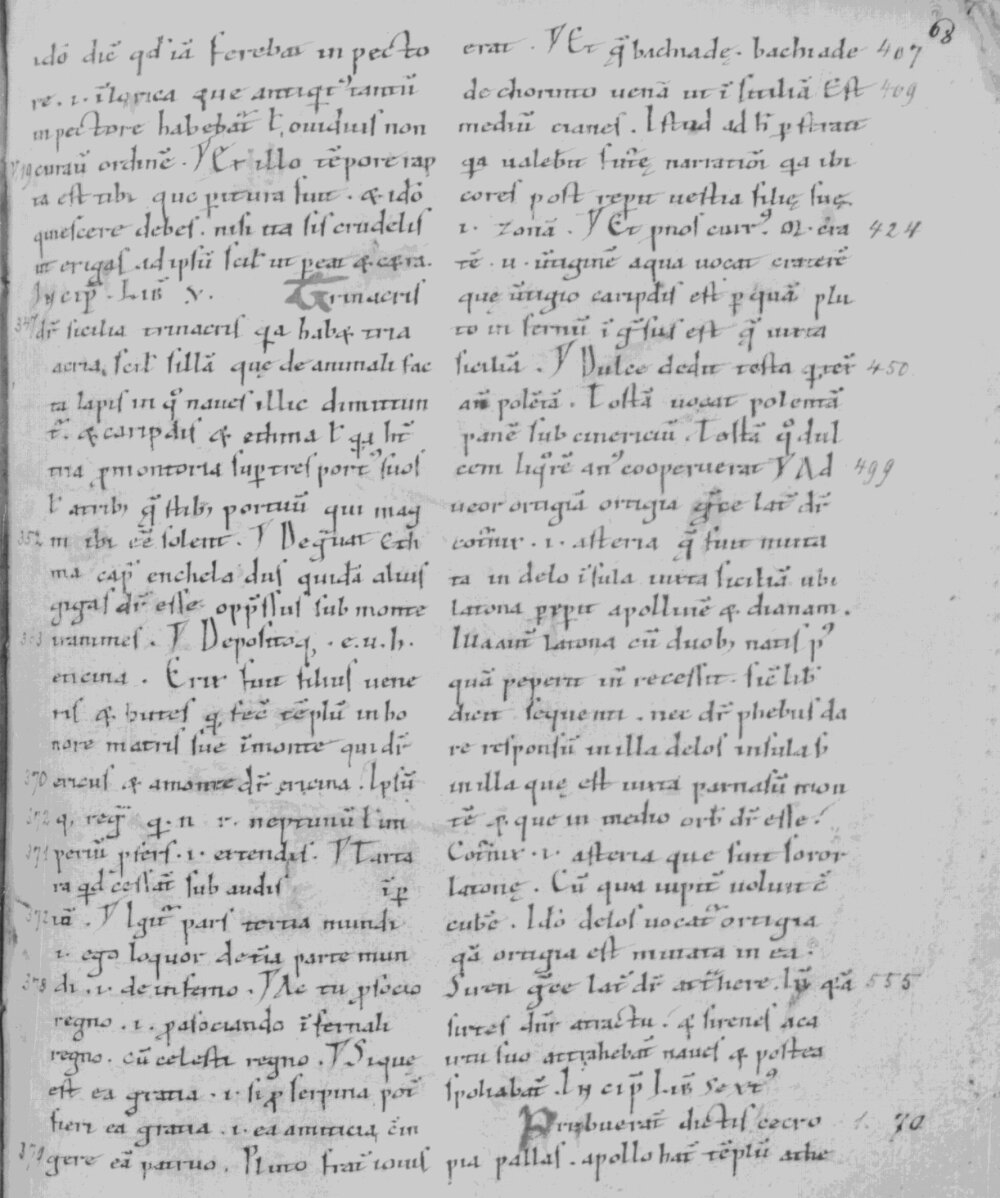 68
idō dic̄ qđ iā ferebat in pecto
re . i . ī lorica que antiqit᷒ tantū
in pectore habebat̄ ł, ouidius non
19 curau᷒ ordinē . V Et illo tēpore rap
ta est tibi que peritura fuit . & idō
quiescere debes . nisi ita sis crudelis
ut erigas ad ipsū scil ut pereat & cetera.
Incip̄ . Lib̄ . V . Trinacris
347 dr̄ sicilia trinacris qa habet tria
acria, scil sillā quę de animali fac
ta lapis in qͦ naues illic dimittun
t᷒ . & caripdis & ethna ł qa hn̄t
tria p̄montoria super tres port᷒ suos
ł a trib; quę stib; portuū qui mag
352 ni ibi eē solent . V Degrauat eth
na cap̄ enchela dus quidā aluis
gigas dr̄ esse opp̄ssus sub monte
363 iranimes . V Depositoq; . e . u . h .
ericina . Erix fuit filius uene
ris & butes qi fec̄ tēplū in ho
nore matris sue ī monte qui dr̄
370 ericus & a monte dr̄ ericina . Ipsū
372 q; reḡ q . n r . neptunū ł im
371 periū p̄fers . i . extendis . V Tarta
ra qđ cessat̄ sub audis īp
372 iū . V Igit᷒ pars tertia mundi
i . ego loquor de t̄tia parte mun
378 di . i . de inferno . V Ac tu p̄ socio
regno . i . p̄ asociando īfernali
regno . cū celesti regno . V Si que
est ea gratia . i . si p̄serpina pot̄
fieri ea gratia . i . ea amiticia ēin
379 gere eā patruo . Pluto frat̄ iouis
erat . V Et quā bachiadę . bachiade 407
de chorinto uenā ut ī siciliā Est 409
mediū cianes . Istud ad h̄ p̄ strauit
qa ualebit futurę narrationi qa ibi
ceres post reperit uestia filię suę
i . zonā . V Et pnos cur᷒ . M . era 424
tē . u . ūtiginē aqua uocat craterē
quę ūtigio caripdis est per quā plu
to in fernū īgrsus est quę iuxta
siciliā . V Dulce dedit testa q ter̄ 450
an̄ polētā . Tostā uocat polentā
panē sub cinericiū . Tostā qͦ dul
cem liqrē an᷒ cooperuerat V Ad 499
ueor ortigiā ortigia grece lat̄ dr̄
cot̄nix . i . asteria quę fuit muta
ta in delo īsula iuxta siciliā ubi
latona peperit apollinē & dianam .
Illa aut̄ latona cū duob; natis p᷒
quā peperit in̄ recessit . sic̄ lib̄
dicit sequenti . nec dr̄ phebus da
re responsū in illa delos insula s;
in illa quę est iuxta parnasū mon
tē & que in medio orb̄ dr̄ esse .
Cot̄nix . i . asteria que fuit soror
latonę . Cū qua iupit̄ uoluit c̄
cubē . Idō delos uocat᷒ ortigia
qa ortigia est mutata in ea .
Siren grece lat̄ dr̄ at̄here . Un̄ qa 555
sirtes dn̄r atractu . & sirenes aca
ntu suo attrahebat̄ naues & postea
spoliabat̄ . Incip̄ Lib̄ Sext᷒
Prebuerat dictis cecro 1. 70
pia pallas . apollo hat̄ tēplū athe